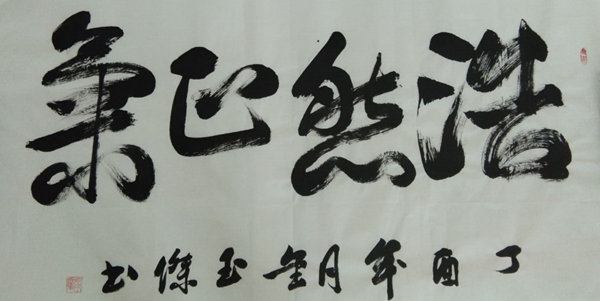 浩然正氣
丁酉年月金玉傑书